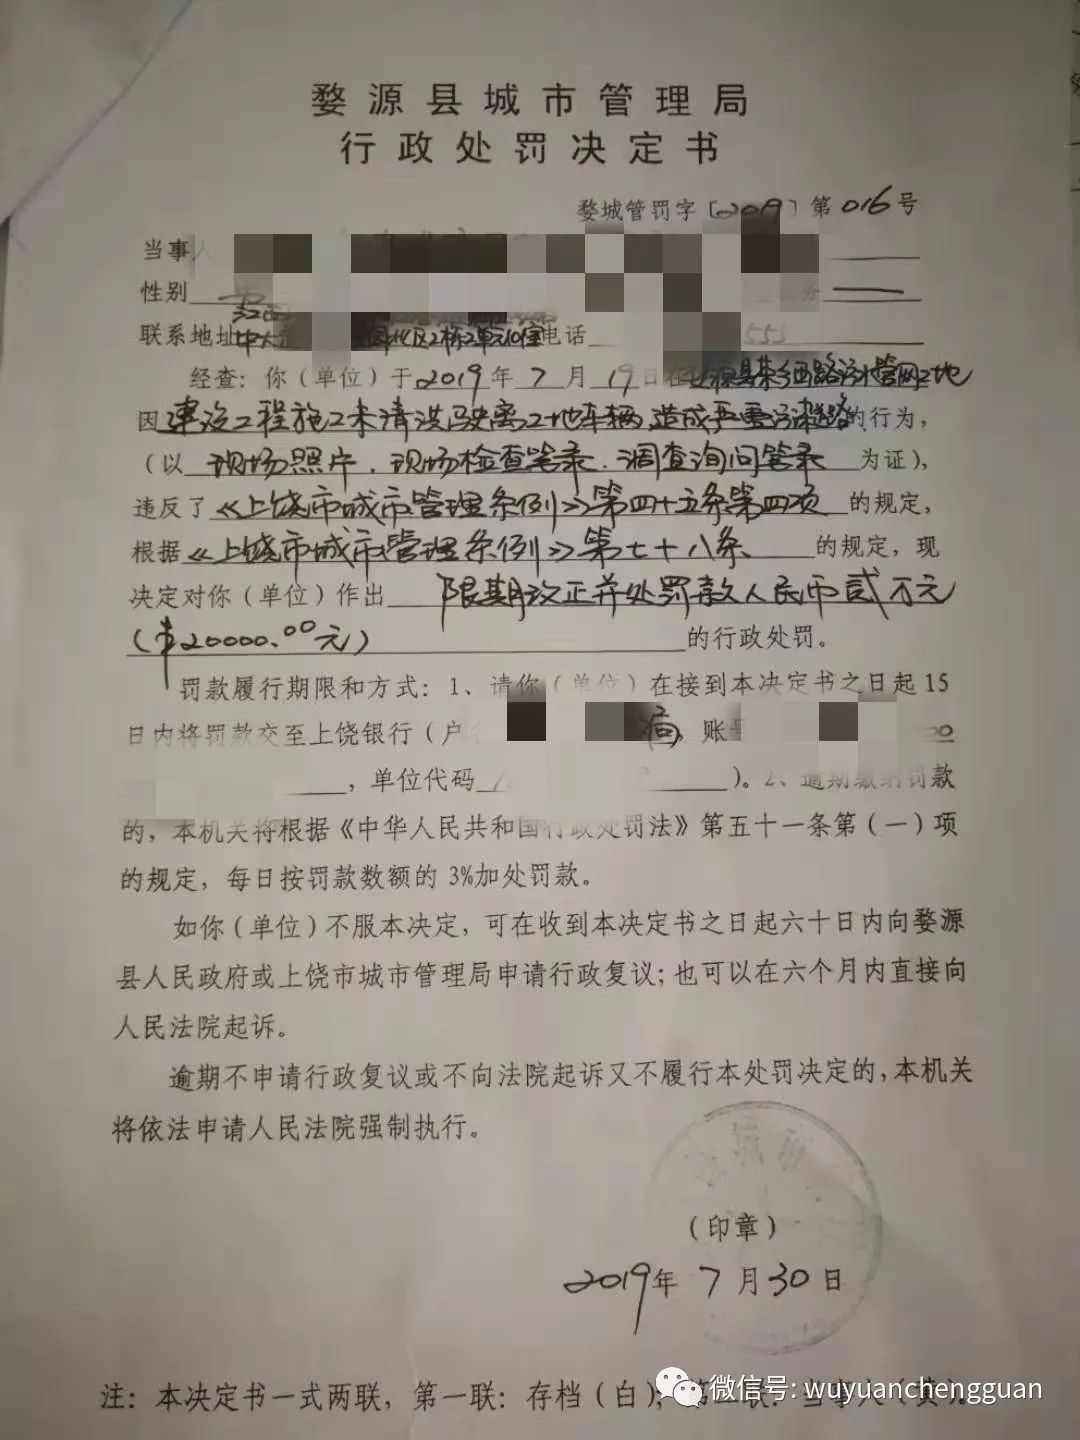 婺源县城市管理局
行政处罚决定书
婺城管罚字〔2019〕第016号
当事人
性别
联系地址 2栋2单元 电话 555
经查：你（单位）于2019年7月19日在 路污水管网工地
因建设工程施工未清洗驶离工地车辆，造成严重污染道路的行为，
（以 现场照片、现场检查笔录、调查询问笔录 为证），
违反了《上饶市城市管理条例》第四十五条第四项 的规定，
根据《上饶市城市管理条例》第七十八条 的规定，现
决定对你（单位）作出 限期改正并处罚款人民币贰万元
（¥20000.00元） 的行政处罚。
罚款履行期限和方式：1、请你（单位）在接到本决定书之日起15
日内将罚款交至上饶银行（户 账号 00
，单位代码 ）。2、逾期缴纳罚款
的，本机关将根据《中华人民共和国行政处罚法》第五十一条第（一）项
的规定，每日按罚款数额的 3%加处罚款。
如你（单位）不服本决定，可在收到本决定书之日起六十日内向婺源
县人民政府或上饶市城市管理局申请行政复议；也可以在六个月内直接向
人民法院起诉。
逾期不申请行政复议或不向法院起诉又不履行本处罚决定的，本机关
将依法申请人民法院强制执行。
（印章）
2019年7月30日
注：本决定书一式两联，第一联：存档（白），第二联：当事人（黄）。
微信号: wuyuanchengguan